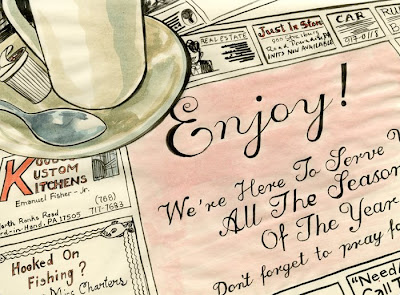 REAL ESTATE
Just In Store
UNITS NOW AVAILABLE
CAR
717-0118
RU
B
Enjoy!
We're Here To Serve
All The Season
Of The Year
Don't forget to pray fo
KUSTOM
KITCHENS
Emanuel Fisher - Jr.
(768)
717-7633
North Ronks Road
rd-in-Hand, PA 17505
Hooked On
Fishing?
Miss Charters
"Need
Call T